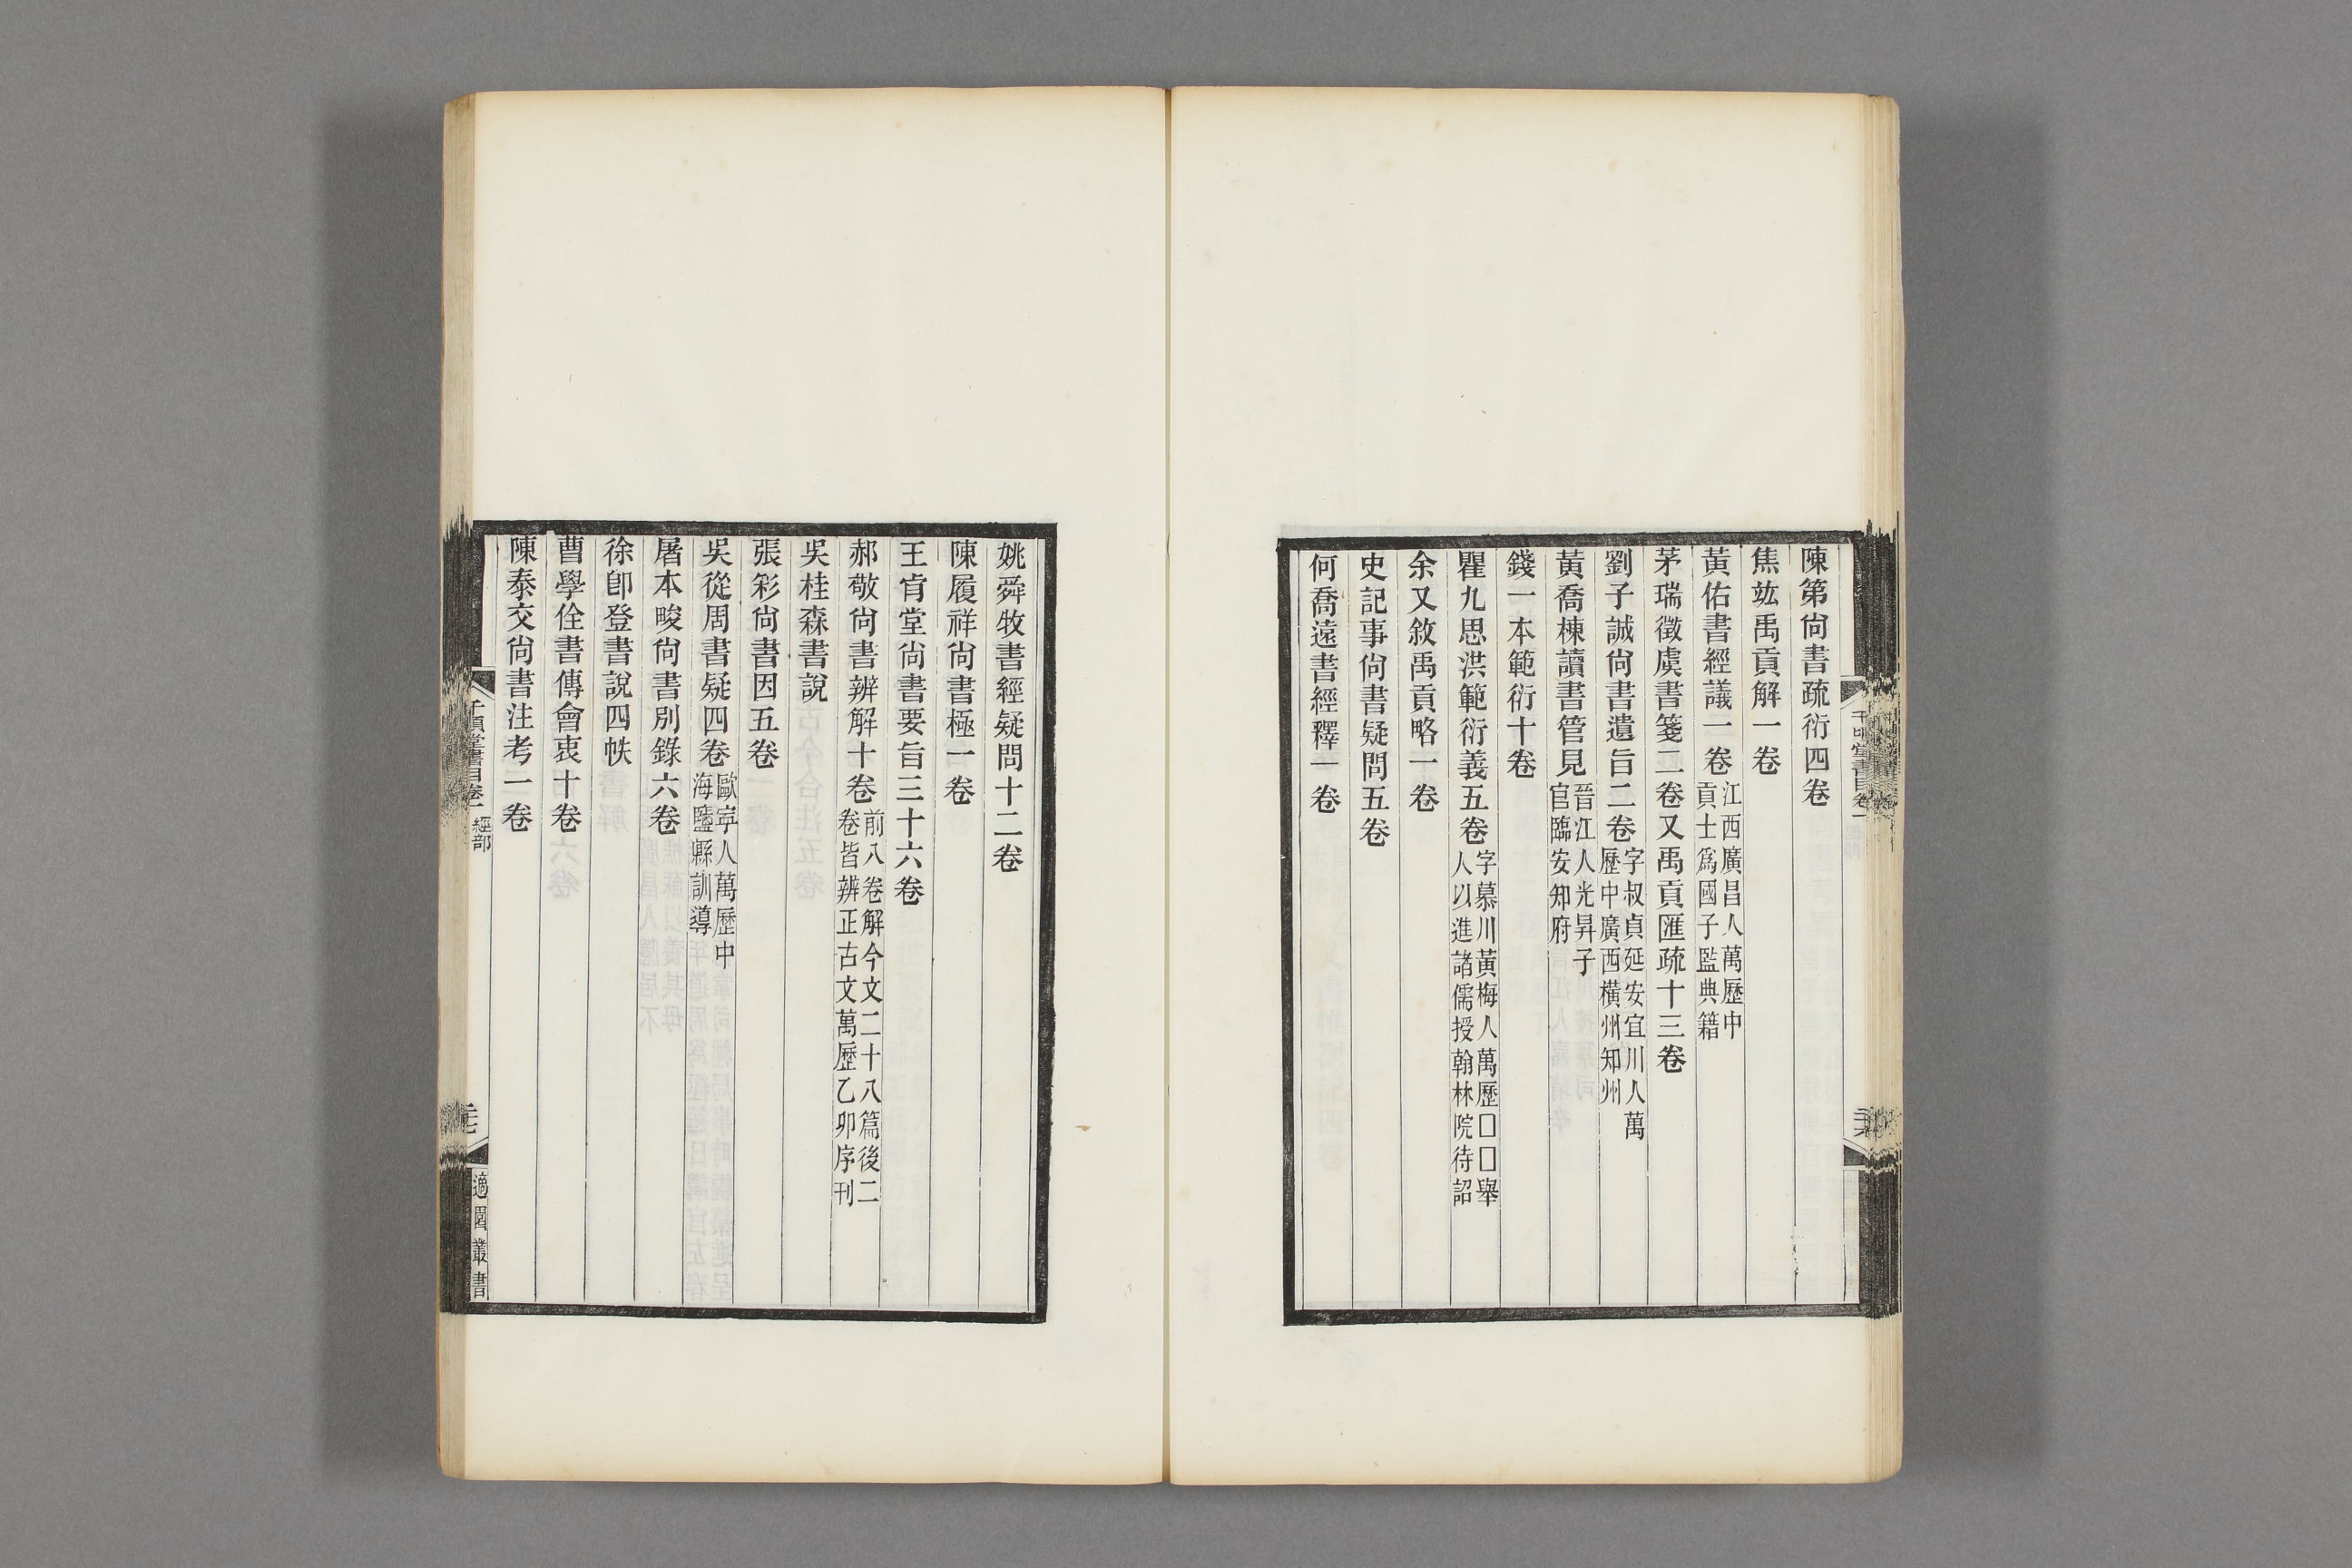 陳第尙書疏衍四卷
焦竑禹貢解一卷
黃佑書經議二卷江西廣昌人萬歷中
貢士爲國子監典籍
茅瑞徵虞書箋二卷又禹貢匯疏十三卷
劉子誠尙書遺旨二卷字叔貞延安宜川人萬
歷中廣西橫州知州
黃喬棟讀書管見晉江人光昇子
官臨安知府
錢一本範衍十卷
瞿九思洪範衍義五卷字慕川黃梅人萬歷□□舉
人以進諸儒授翰林院待詔
余又敘禹貢略一卷
史記事尙書疑問五卷
何喬遠書經釋一卷
姚舜牧書經疑問十二卷
陳履祥尙書極一卷
王肯堂尙書要旨三十六卷
郝敬尙書辨解十卷前八卷解今文二十八篇後二
卷皆辨正古文萬歷乙卯序刊
吳桂森書說
張彩尙書因五卷
吳從周書疑四卷歐寧人萬歷中
海鹽縣訓導
屠本畯尙書別錄六卷
徐卽登書說四帙
曹學佺書傳會衷十卷
陳泰交尙書注考一卷
千頃堂書目卷一 經部
二七
適園叢書